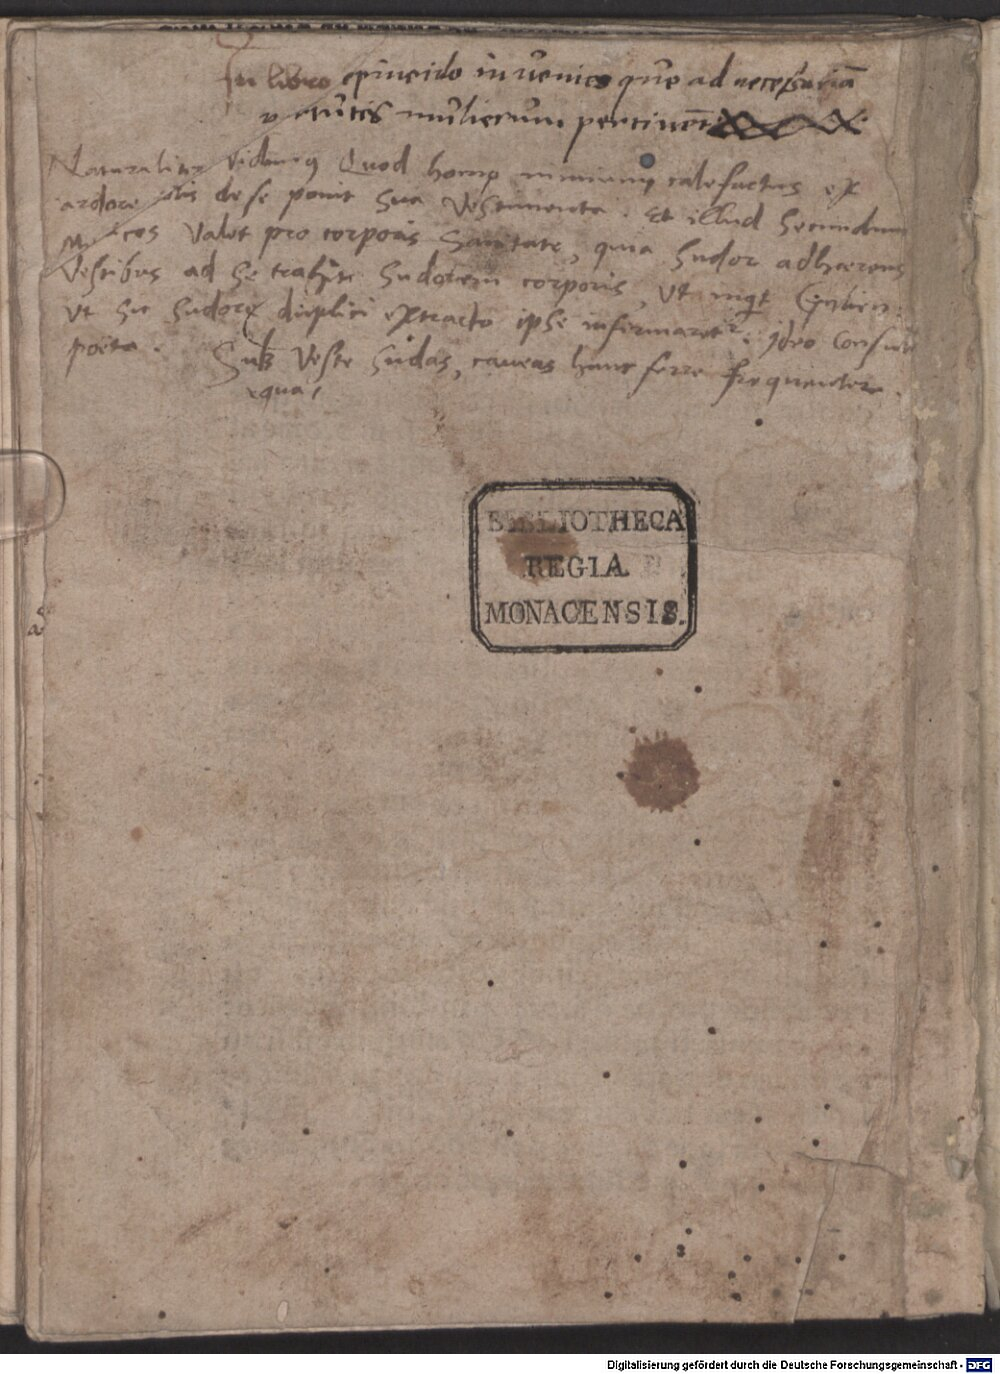 In libro epineido invenies que ad necessariā
v̄tutes mulierum pertinēt
Naturaliter videmus Quod homo nimium calefactus ex
ardore solis de se ponit sua vestimenta. Et illud secundum
valet pro corporis sanitate, quia sudor adhærens
vestibus ad se trahit sudorem corporis, vt inqt Galien:
vt sic sudore duplici extracto ipse infirmaretr. Ideo consu
poeta. Sub veste sudas, caueas hanc ferre frequenter.
qua
BIBLIOTHECA
REGIA
MONACENSIS.
Digitalisierung gefördert durch die Deutsche Forschungsgemeinschaft - DFG